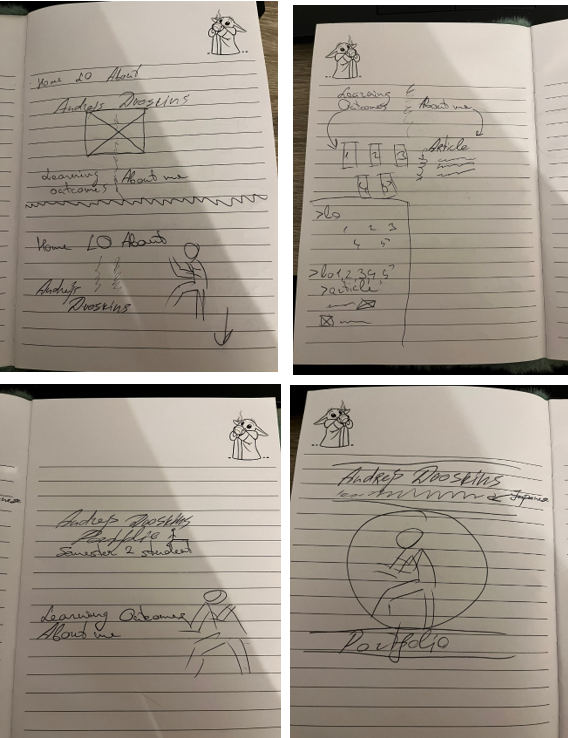 Home LO About
Andrejs Dvoskins
Learning
outcomes
About me
Home LO About
Andrejs
Dvoskins
Learning
Outcomes
About me
Article
1 2 3
4 5
>lo
1 2 3
4 5
>lo1,2,3,4,5
>article
Andrejs Dvoskins
Portfolio
Semester 2 student
Learning Outcomes
About me
Andrejs Dvoskins
Portfolio